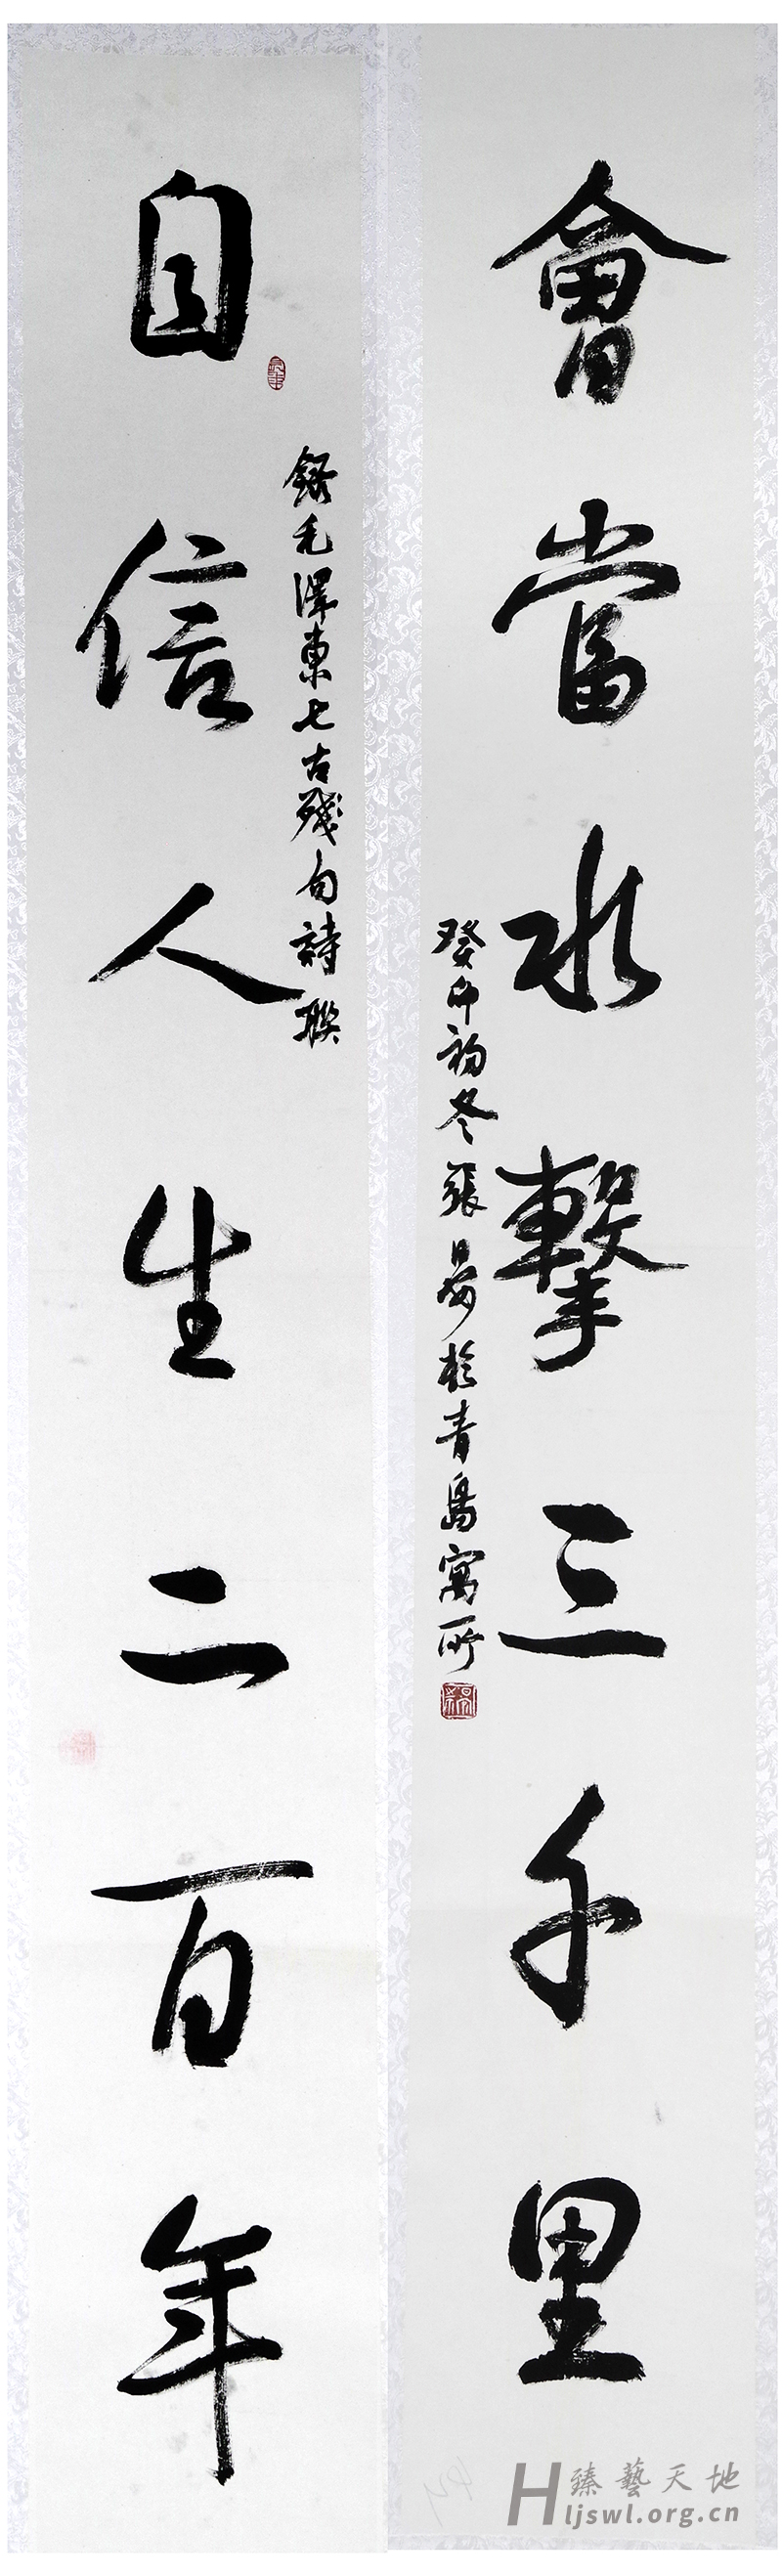 自信人生二百年
錄毛澤東七古殘句詩聯
會當水擊三千里
癸卯初冬張晏於青島寓所
臻藝天地
Hljswl.org.cn